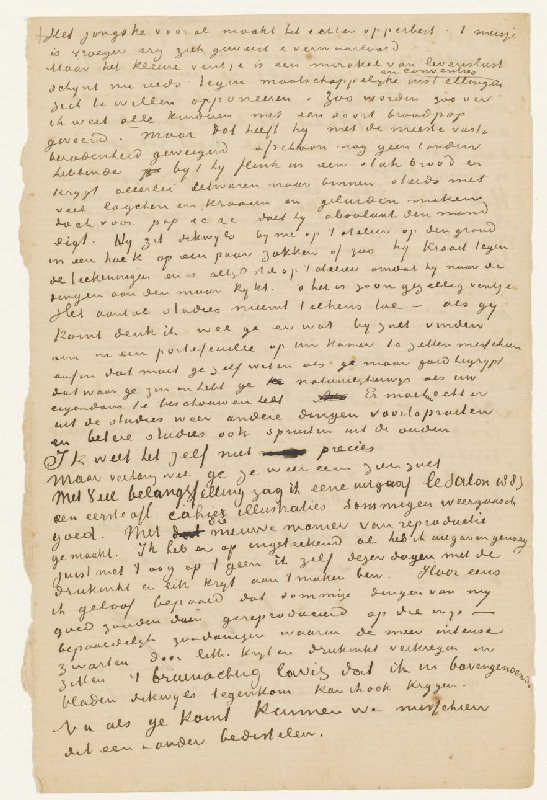 Het jongske vooral maakt het echter opperbest. 't meisje
is vroeger erg ziek geweest & verwaarloosd.
Maar het kleine ventje is een mirakel van levenslust
schijnt nu reeds tegen maatschappelijke instellingen
en conventies
zich te willen opponeeren. Zoo worden zoo ver
ik weet alle kinderen met een soort broodpap
gevoerd. maar dat heeft hij met de meeste vast-
beradenheid geweigerd ofschoon nog geen tanden
hebbende bijt hij flink in een stuk brood en
krijgt allerlei eetwaren naar binnen steeds met
veel lagchen en kraaien en geluiden maken
doch voor pap &c &c doet hij absoluut den mond
digt. Hij zit dikwijls bij me op 't atelier op den grond
in een hoek op een paar zakken of zoo hij kraait tegen
de teekeningen en is altijd stil op 't atelier omdat hij naar de
dingen aan den muur kijkt. o het is zoon gezellig ventje.
Het aantal studies neemt telkens toe – als gij
komt denk ik wel ge er wat bij zult vinden
om in een portefeuille op uw kamer te zetten misschien
enfin dat moet ge zelf weten als ge maar goed begrijpt
dat waar ge zin in hebt ge natuurlijkerwijs als uw
eigendom te beschouwen hebt Er moet echter
uit de studies weer andere dingen voortspruiten
en betere studies ook spruiten uit de ouden
Ik weet het zelf niet precies
Maar verlang wel ge ze weer eens zien zult
Met veel belangstelling zag ik eene uitgaaf le Salon 1883
een eerste afl. cahier illustraties sommigen weergaasch
goed. Met de nieuwe manier van reproductie
gemaakt. Ik heb er op ingeteekend al heb ik uitgaven genoeg
juist met 't oog op 't geen ik zelf dezer dagen met de
drukinkt en lith. krijt aan 't maken ben. Hoor eens
ik geloof bepaald dat sommige dingen van mij
goed zouden doen gereproduceerd op die wijs –
bepaaldelijk zoodanigen waarin de meer intense
zwarten door lith. krijt en drukinkt verkregen en
zitten 't bruinachtig lavis dat ik in bovengenoemde
bladen dikwijls tegenkom kan ik ook krijgen.
Nu als ge komt kunnen we misschien
dit een & ander bedisselen.